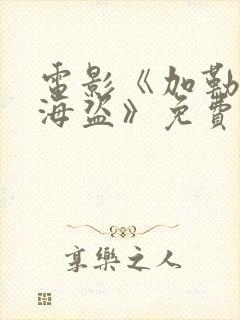 電影《加勒
海盜》免費
享樂之人